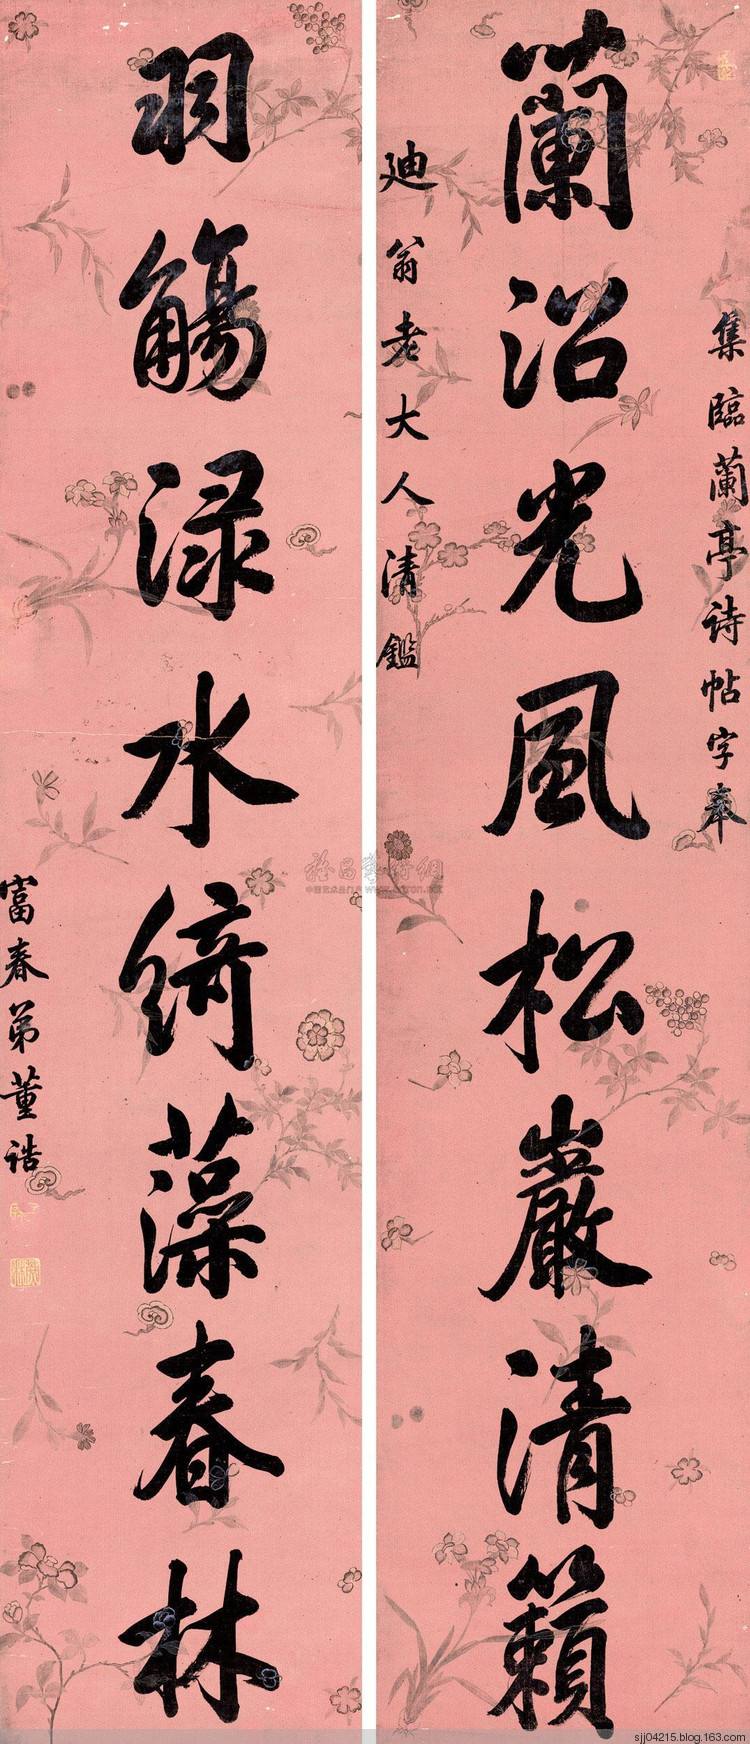 集臨蘭亭詩帖字奉
蘭沼光風松巖清籟
廸翁老大人清鑑
羽觴渌水綺藻春林
富春弟董誥
sjj04215.blog.163.com